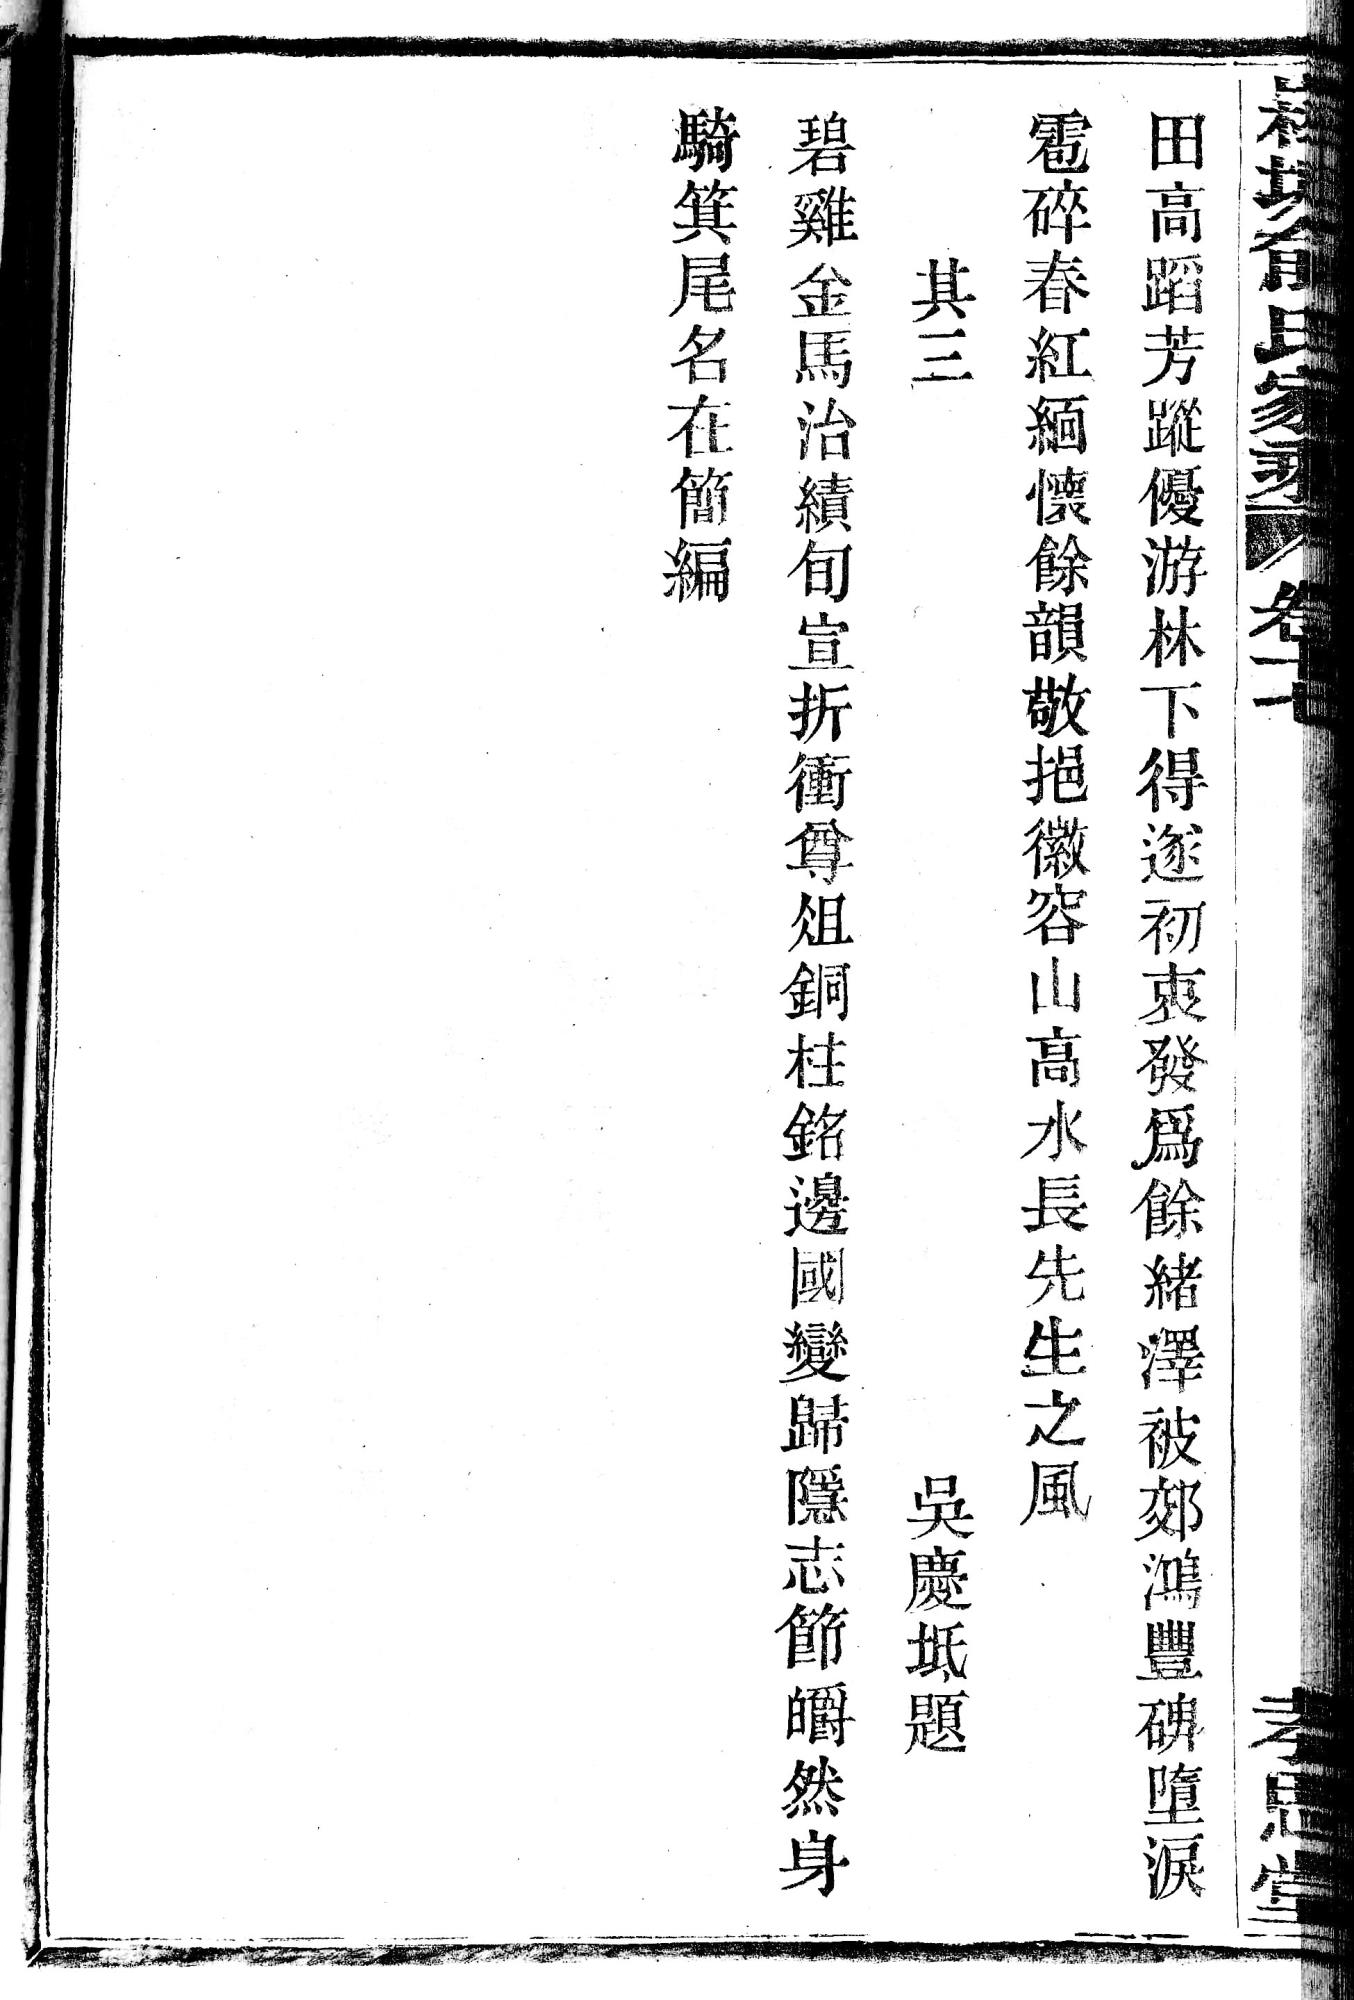 俞氏家乘 卷十七 孝思堂
田高蹈芳蹤優游林下得遂初衷發爲餘緒澤被郊鴻豐碑墮淚
雹碎春紅緬懷餘韻敬挹徽容山高水長先生之風
其三 吳慶坻題
碧雞金馬治績旬宣折衝尊俎銅柱銘邊國變歸隱志節皭然身
騎箕尾名在簡編